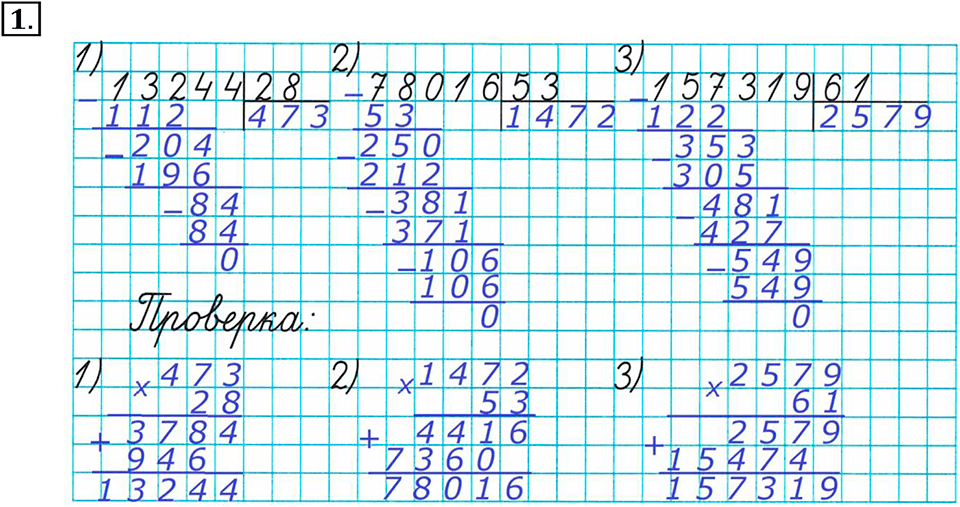 1.
1) 2) 3)
13244 28 − 78016 53 157319 61
− 112 473 53 1472 − 122 2579
− 204 − 250 − 353
196 212 305
− 84 − 381 − 481
84 371 427
0 − 106 − 549
106 549
Проверка: 0 0
1) × 473 2) × 1472 3) × 2579
28 53 61
+ 3784 + 4416 + 2579
946 7360 15474
13244 78016 157319